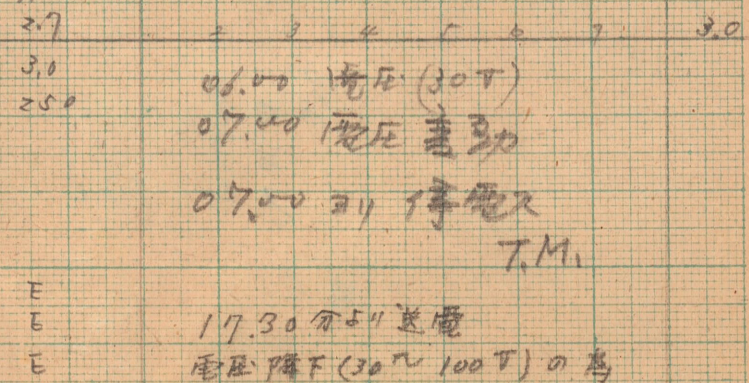 2.7 2 3 4 5 6 7 3.0
3.0 06.00 電圧 (30V)
250 07.00 電圧変動
07.00 ヨリ 停電ス
T.M.
E
E 17.30分より送電
E 電圧降下 (30〜100V) の為